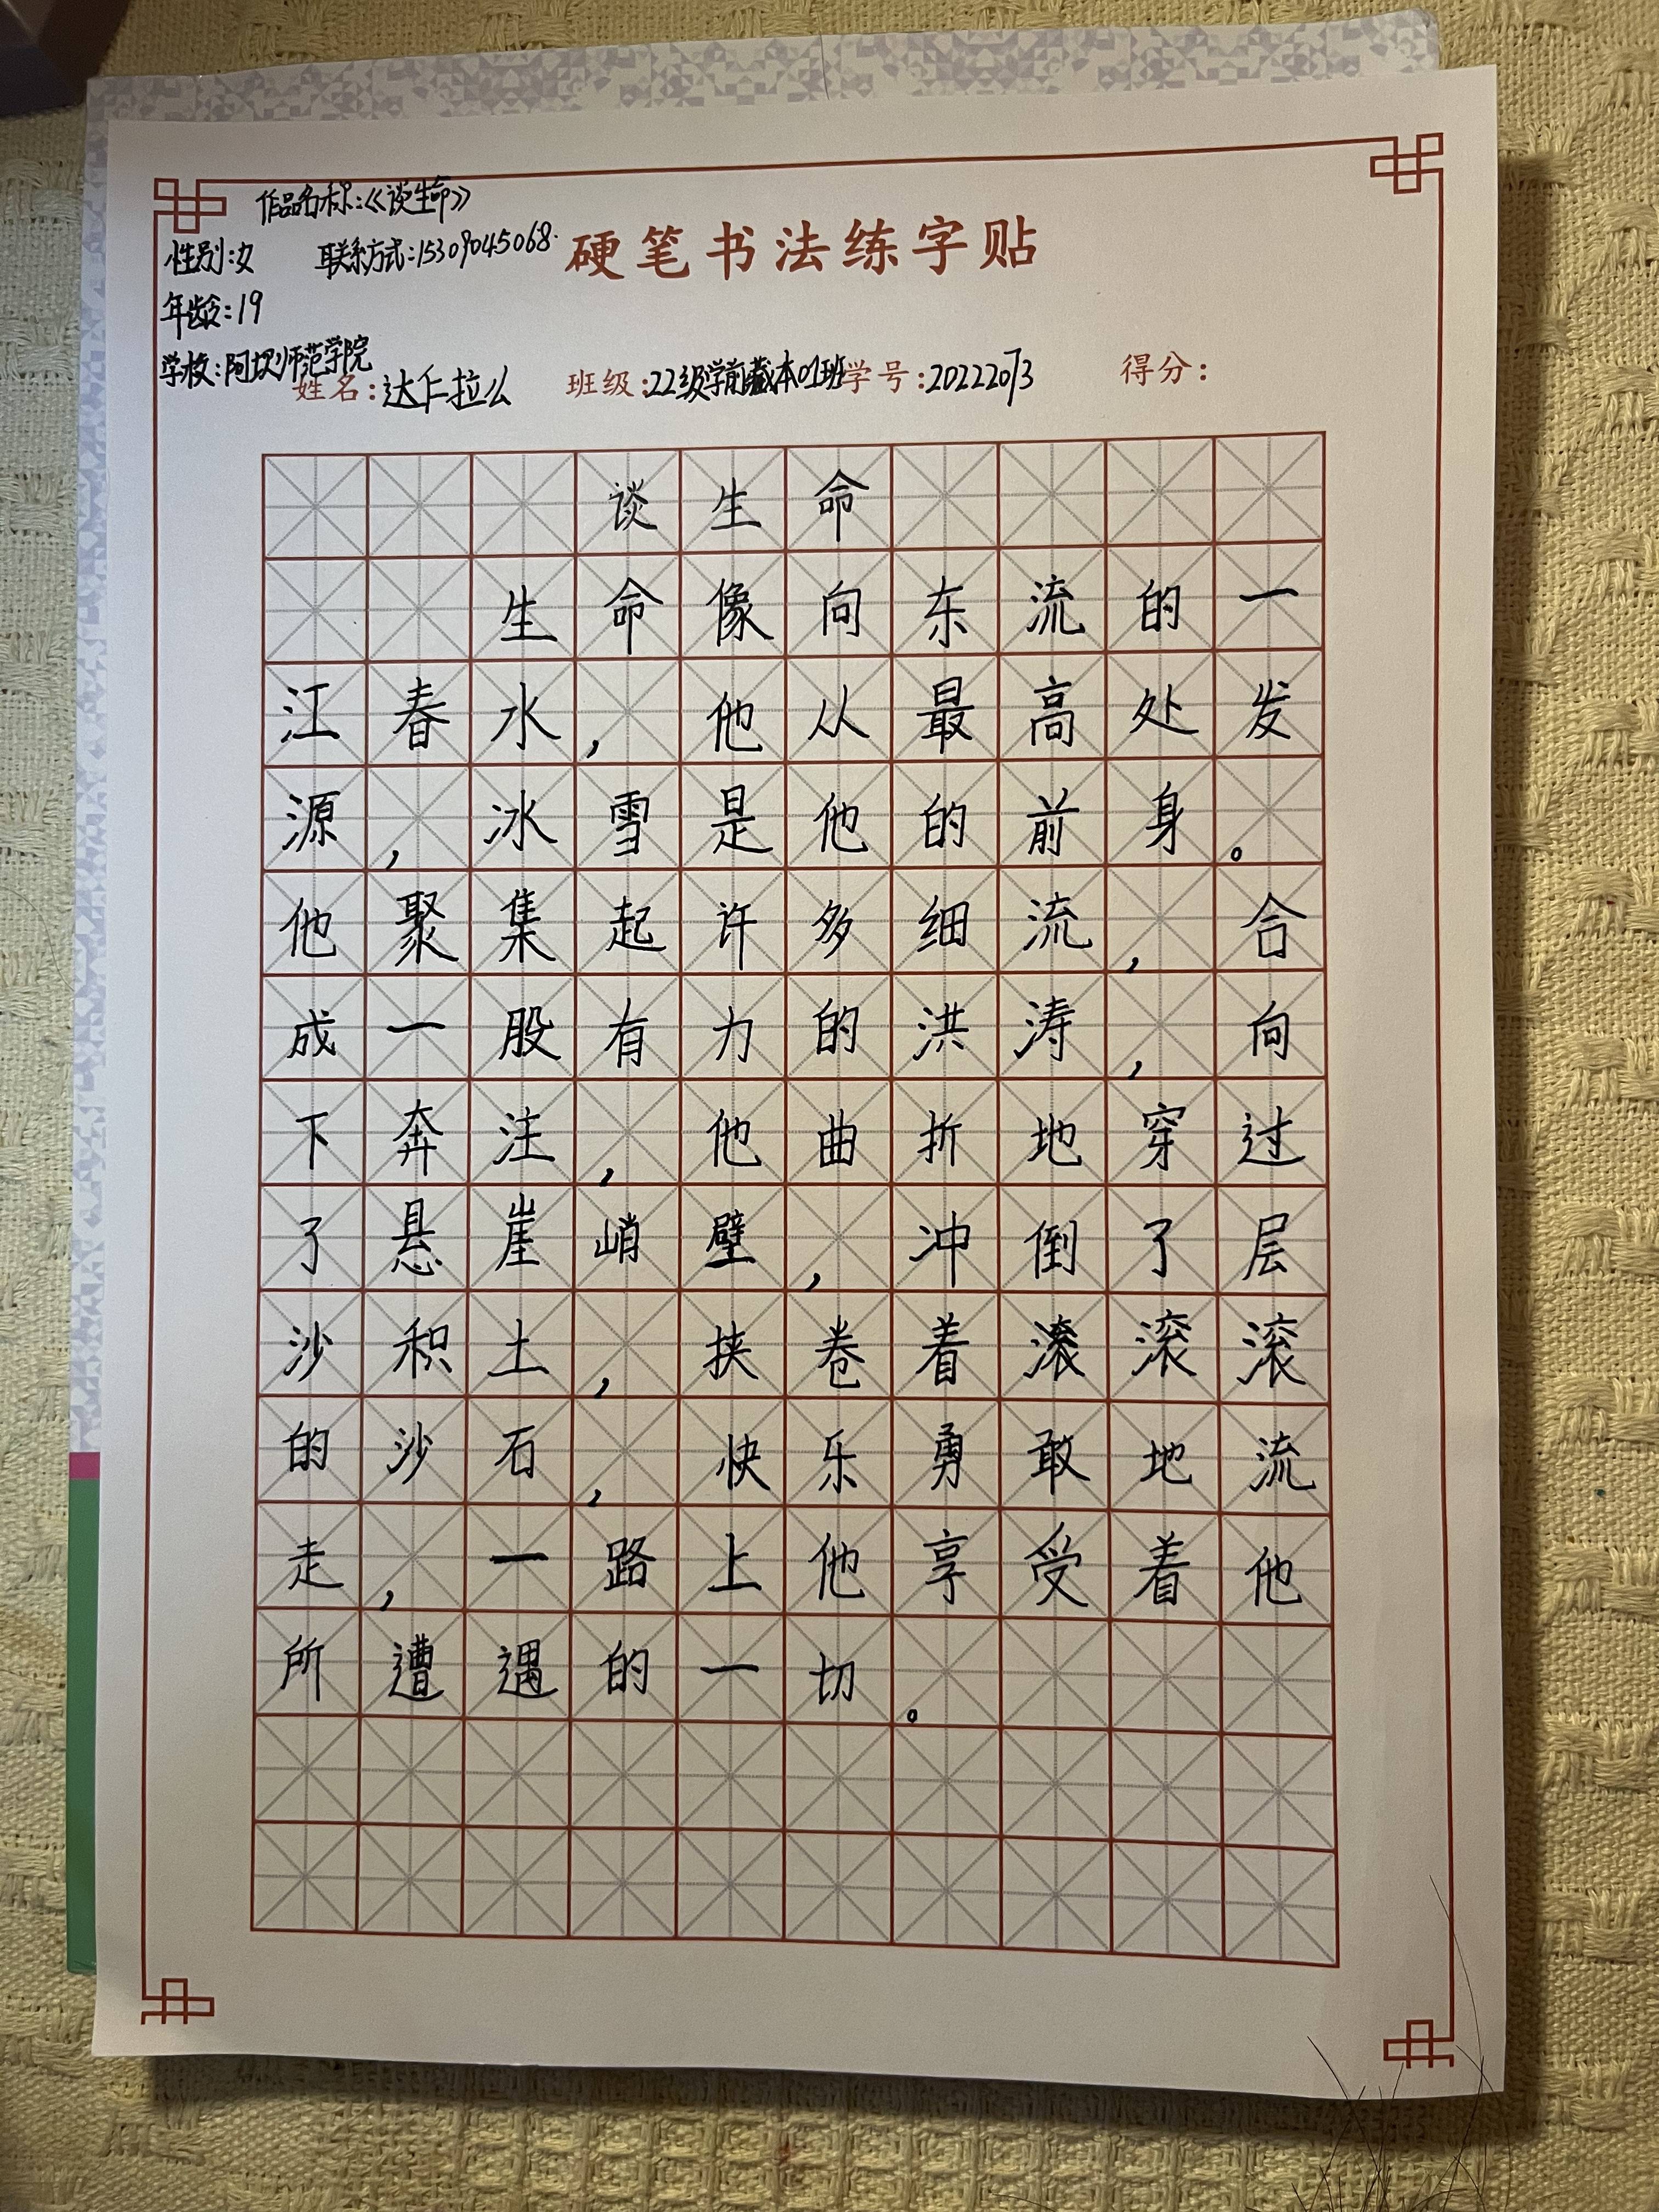 作品名称:《谈生命》
性别:女 联系方式:15309045068.
硬笔书法练字贴
年龄:19
学校:阿坝师范学院
姓名:达仁拉么 班级:22级学前藏本01班 学号:20222073 得分:
谈生命
生命像向东流的一
江春水,他从最高处发
源,冰雪是他的前身。
他聚集起许多细流,合
成一股有力的洪涛,向
下奔注,他曲折地穿过
了悬崖峭壁,冲倒了层
沙积土,挟卷着滚滚滚
的沙石,快乐勇敢地流
走,一路上他享受着他
所遭遇的一切。